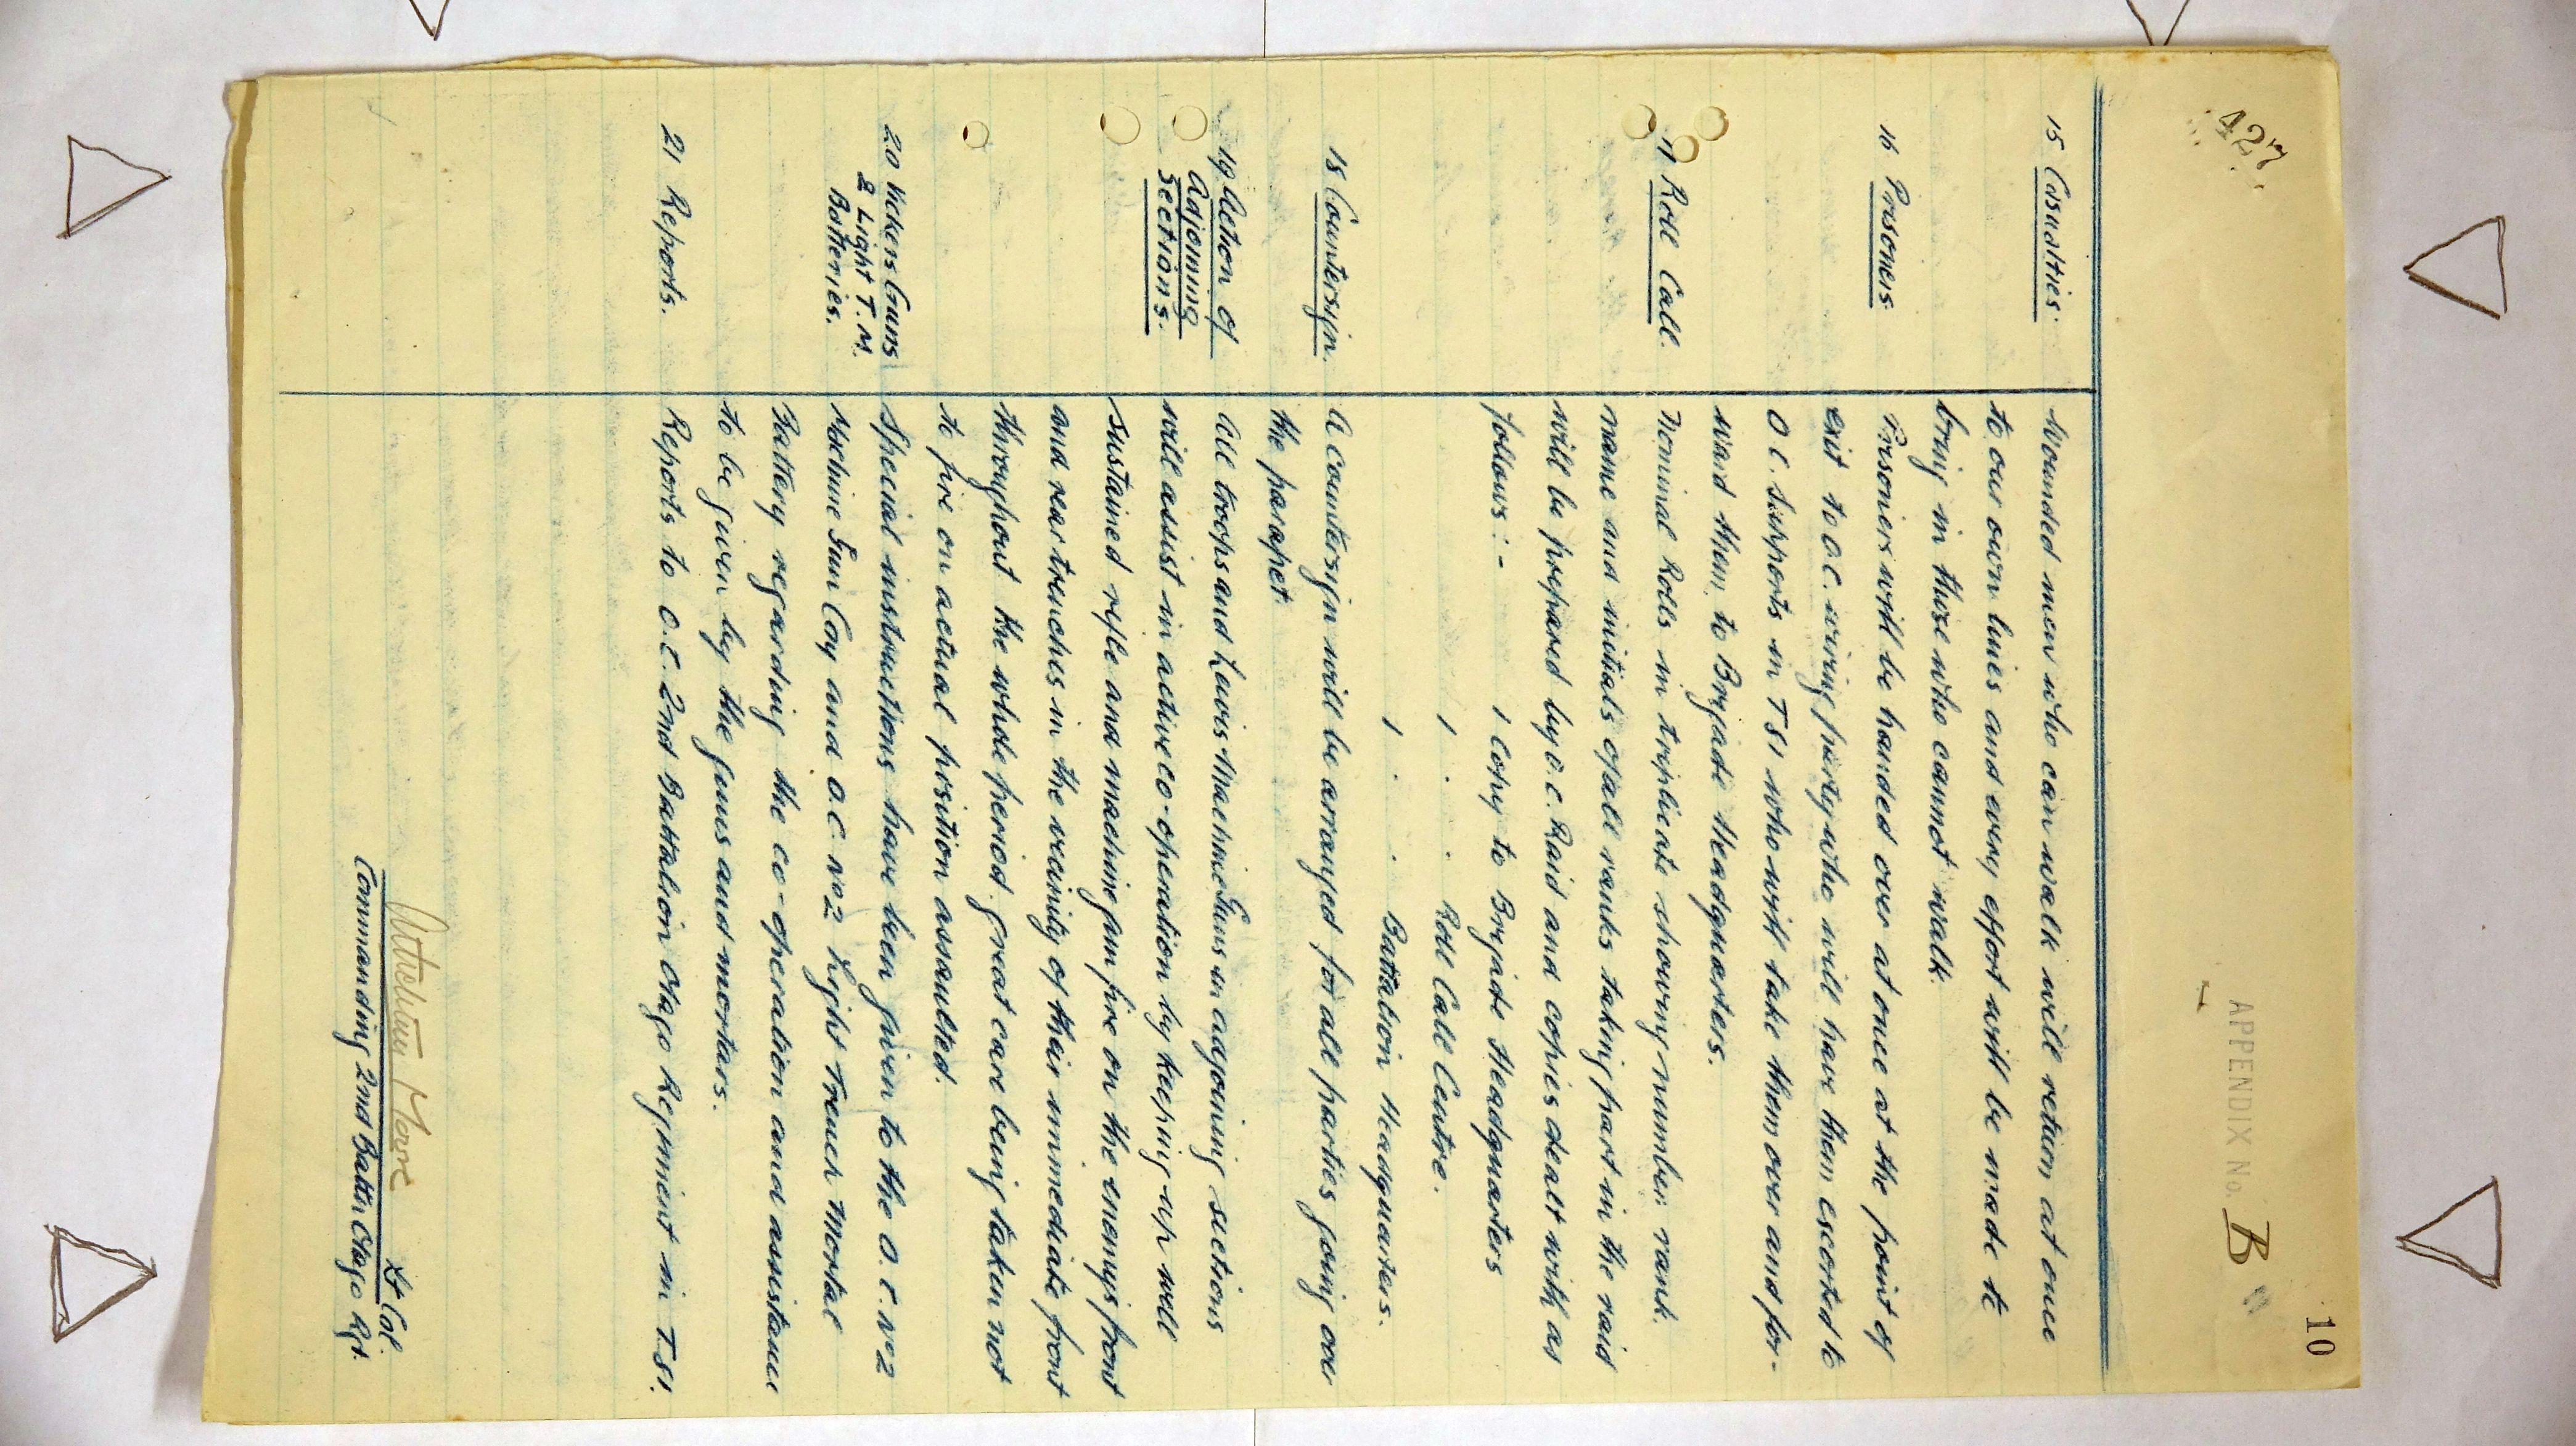 10
427
APPENDIX No. B
15 Casualties.
Wounded men who can walk will return at once
to our own lines and every effort will be made to
bring in those who cannot walk.
16 Prisoners
Prisoners will be handed over at once at the point of
exit to O.C. wiring party who will have them escorted to
O.C. Supports in T51 who will take them over and for-
ward them to Brigade Headquarters.
17 Roll Call.
Nominal Rolls in triplicate showing number: rank.
name and initials of all ranks taking part in the raid
will be prepared by O.C. Raid and copies dealt with as
follows:-
1 Copy to Brigade Headquarters
1 . . Roll Call Centre.
1 . . Battalion Headquarters.
18 Countersign.
A countersign will be arranged for all parties going over
the parapet.
19 Action of
Adjoining
Sections.
All troops and Lewis Machine Guns in adjoining sections
will assist in active co-operation by keeping up well
sustained rifle and machine gun fire on the enemys front
and rear trenches in the vicinity of their immediate front
throughout the whole period. great care being taken not
to fire on actual position assaulted.
20 Vickers Guns
& Light T.M.
Batteries.
Special instructions have been given to the O.C. No 2
Machine Gun Coy and O.C. No 2 Light Trench Mortar
Battery regarding the co-operation and assistance
to be given by the guns and mortars.
21 Reports.
Reports to O.C. 2nd Battalion Otago Regiment in T.51.
Moore Lt Col.
Commanding 2nd Battn Otago Rgt.